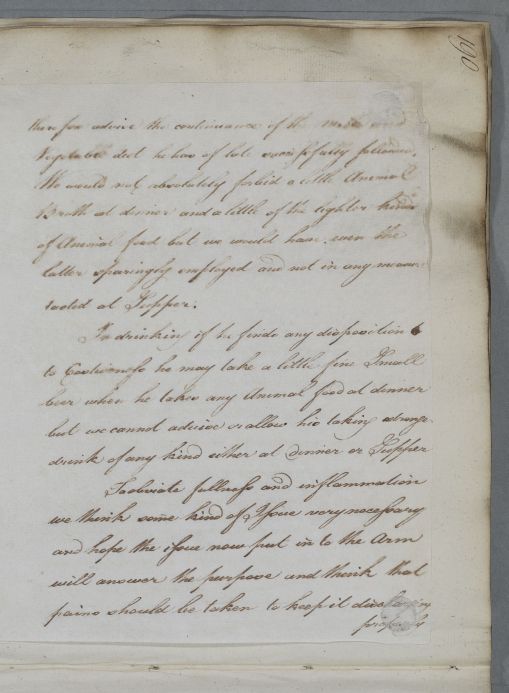 190
therefor advise the continuance of the milk and
Vegetable diet he has of late successfully followed.
We would not absolutely forbid a little Animal
Broth at dinner and a little of the lighter kinds
of Animal food but we would have even the
latter sparingly employed and not in any measure
tasted at Supper.
In drinking if he finds any disposition to
to Costiveness he may take a little fine Small
beer when he takes any Animal food at dinner
but we cannot advise or allow his taking a strong
drink of any kind either at Dinner or Supper
To obviate fullness and inflammation
we think some kind of Issue very necessary
and hope the issue now put in to the Arm
will answer the purpose and think that
pains should be taken to keep it discharging
properly